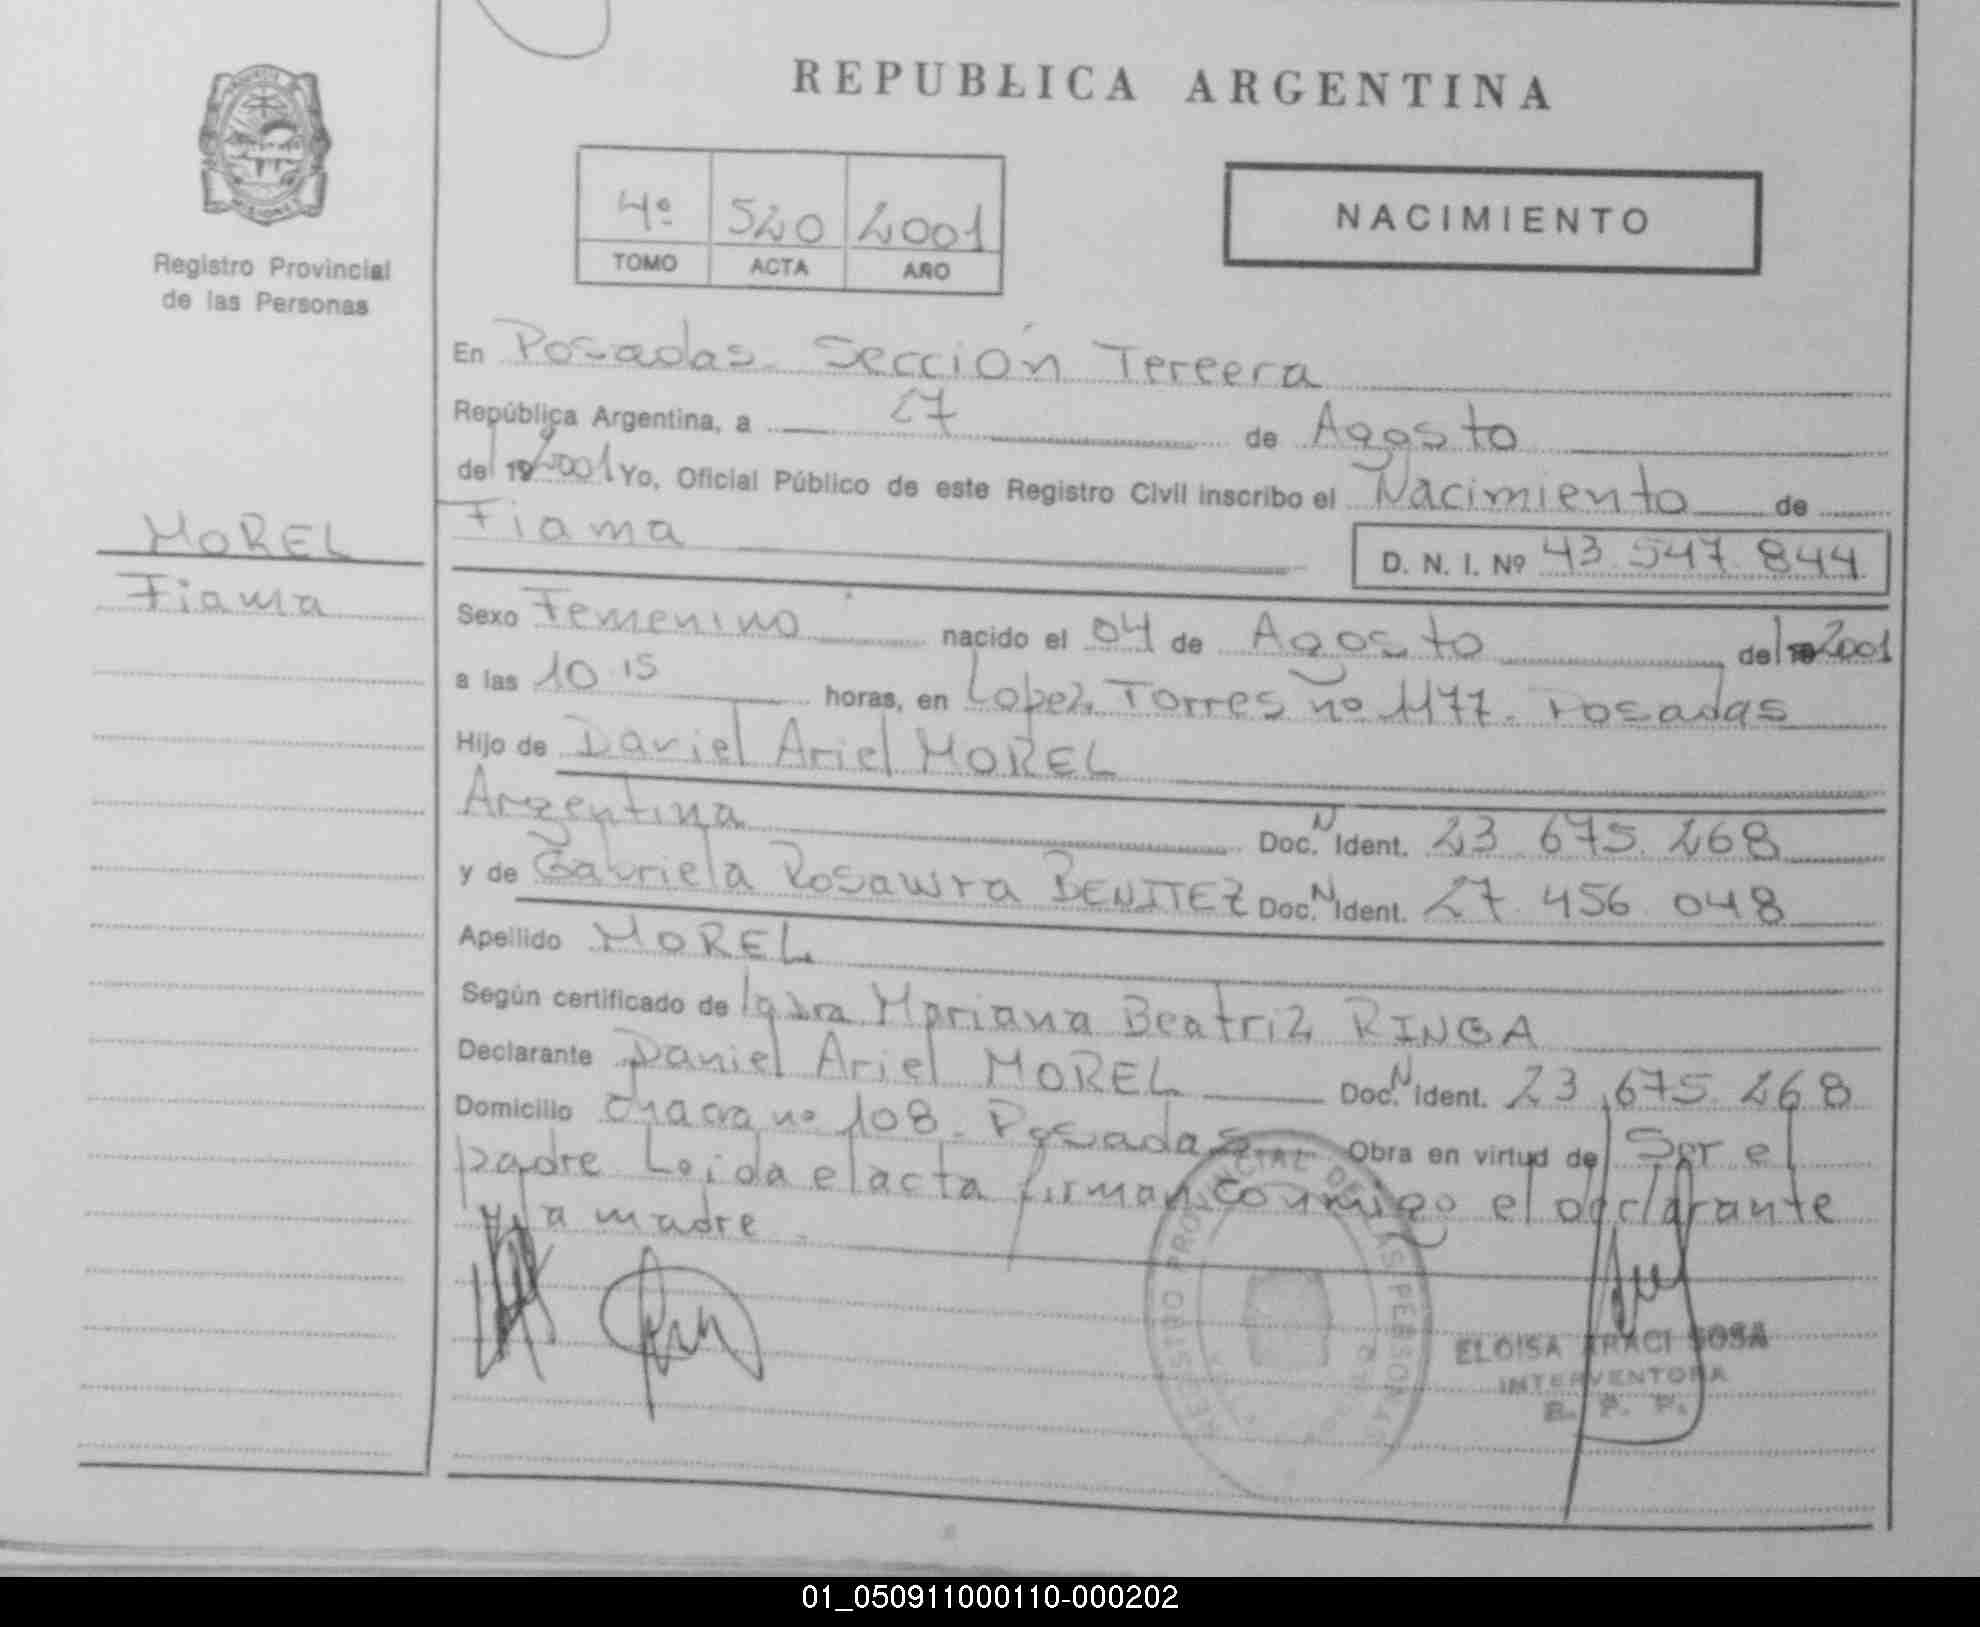 REPUBLICA ARGENTINA
4º 520 2001
TOMO ACTA AÑO
NACIMIENTO
Registro Provincial
de las Personas
MOREL
Fiama
En Posadas. Sección Tercera
República Argentina, a 27 de Agosto
del 2001 Yo, Oficial Público de este Registro Civil inscribo el Nacimiento de
Fiama
D. N. I. Nº 43.547.844
Sexo Femenino nacido el 04 de Agosto del 2001
a las 10 15 horas, en Lopez Torres nº 1177. Posadas
Hijo de Daniel Ariel MOREL
Argentina Doc. N Ident. 23.675.268
y de Gabriela Rosawra BENITEZ Doc. N Ident. 27.456.048
Apellido MOREL
Según certificado de Mariana Beatriz RINGA
Declarante Daniel Ariel MOREL Doc. N Ident. 23.675.268
Domicilio chacra nº 108. Posadas Obra en virtud de Ser el
padre Leida el acta firman conmigo el declarante
y la madre.
REGISTRO PROVINCIAL DE LAS PERSONAS
ELOISA ARACI SOSA
INTERVENTORA
R. P. P.
01_050911000110-000202